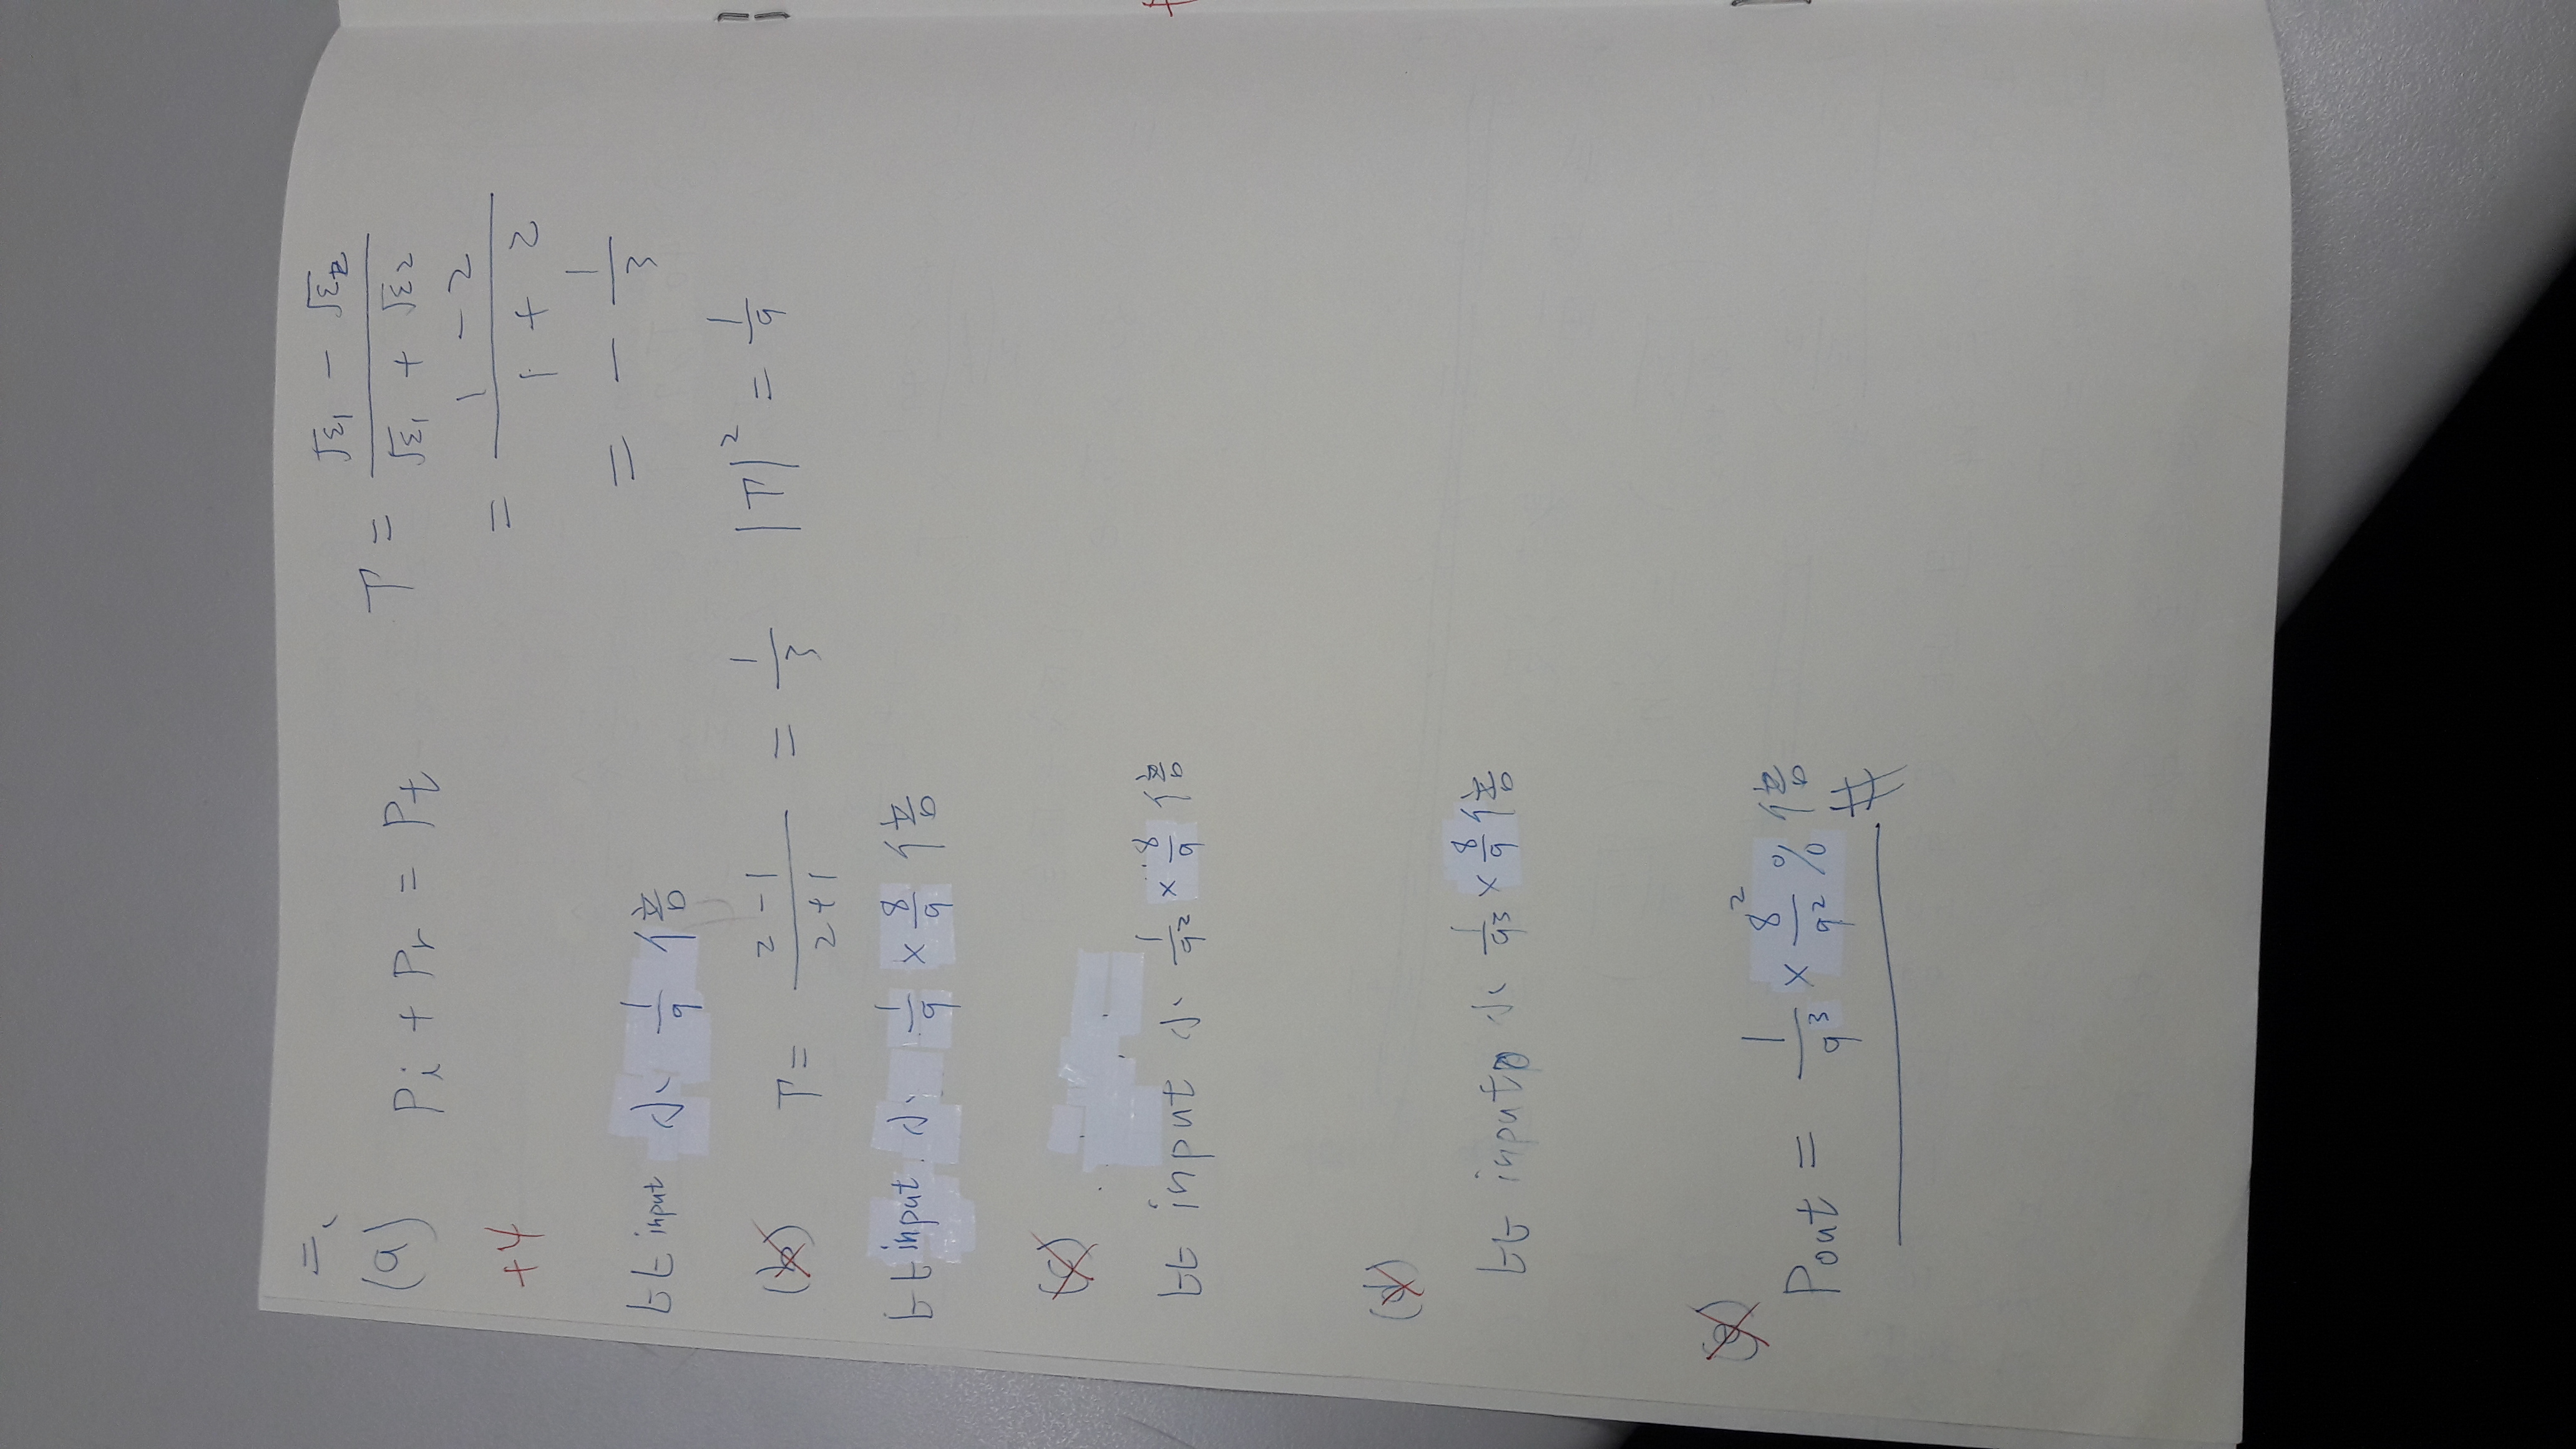 二、
(a) Pi + Pr = Pt
Γ = (√ε1 - √ε2) / (√ε1 + √ε2)
= (1 - 2) / (1 + 2)
= - 1/3
+4
比 input 小 1/9 倍
(b) Γ = (2-1)/(2+1) = 1/3 |Γ|² = 1/9
比 input 小 1/9 × 8/9 倍
(c)
比 input 小 1/9² × 8/9 倍
(d)
比 input 小 1/9³ × 8/9 倍
(e)
Pout = 1/9³ × 8²/9² % 倍 #